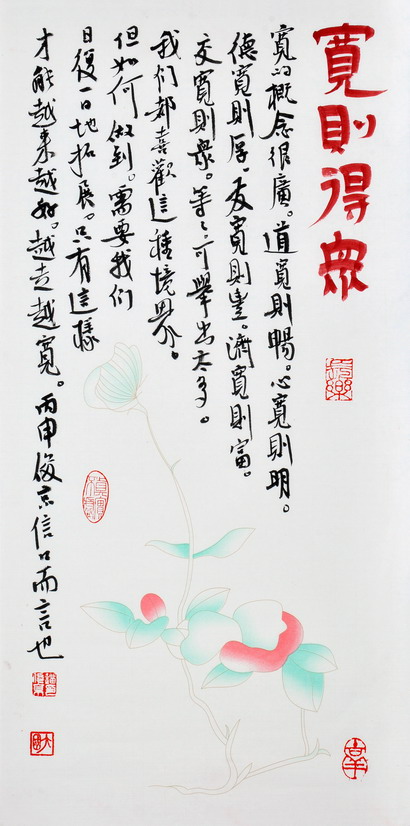 寬則得眾
寬的概念很廣。道寬則暢。心寬則明。
德寬則厚。友寬則豐。濟寬則富。
交寬則眾。等々可舉出太多。
我们都喜歡這種境界。
但如何做到。需要我们
日復一日地拓展。只有這樣
才能越来越好。越走越寬。丙申俊京信口而言也